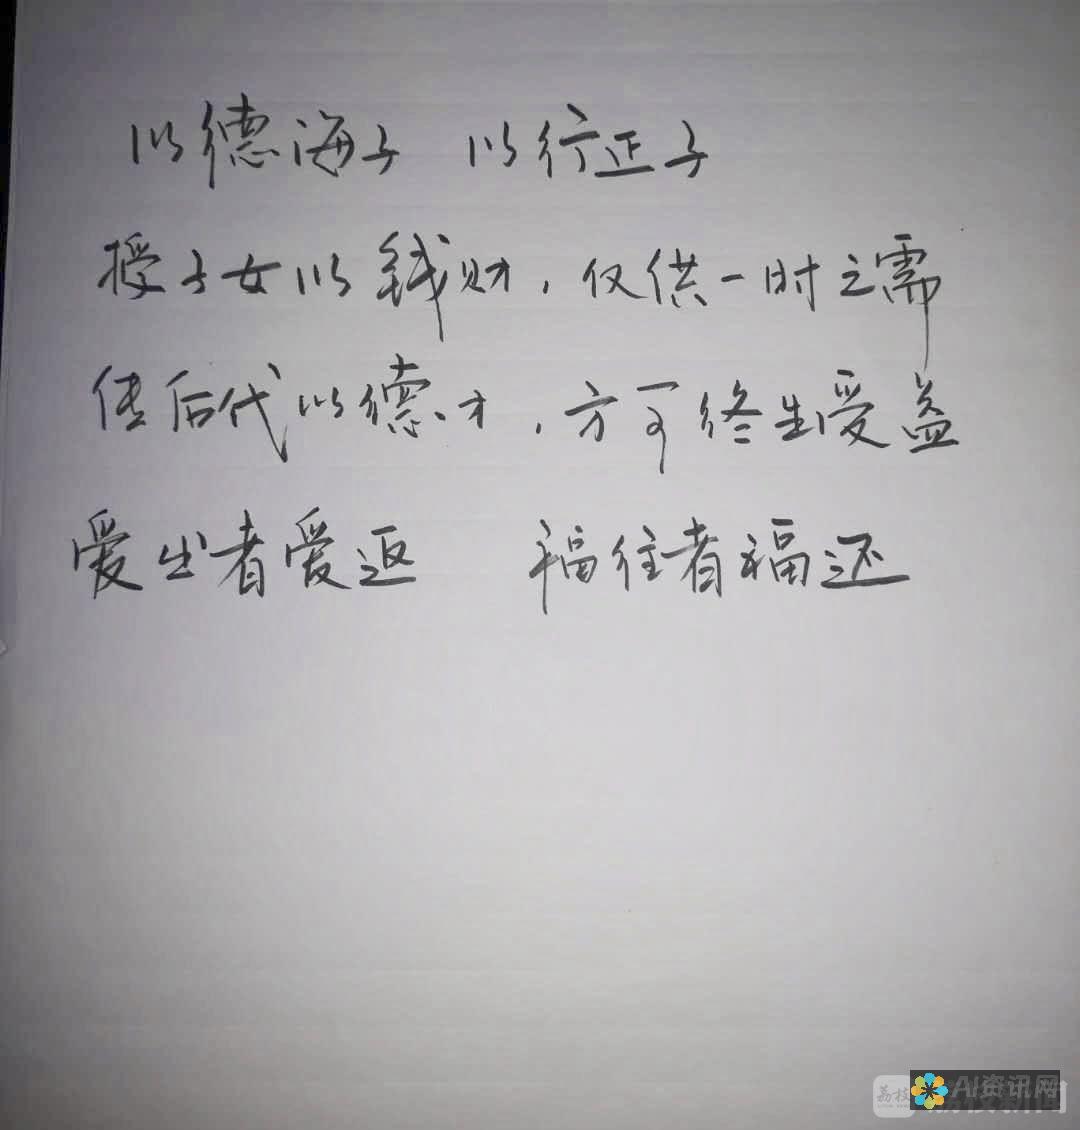 以德海子 以行正子
授子女以钱财，仅供一时之需
传后代以德才，方可终生受益
爱出者爱返 福往者福还
荔枝
AI资讯网